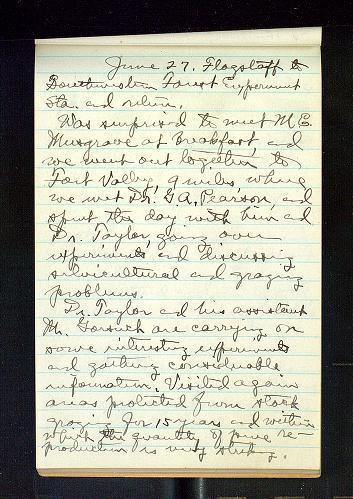 June 27. Flagstaff to
Southwestern Forest Experiment
Sta. and return.
Was surprised to meet M.E.
Musgrave at breakfast, and
we went out together to
Fort Valley, 9 miles where
we met Dr. G.A. Pearson, and
spent the day with him and
Dr. Taylor, going over
experiments and discussing
silvicultural and grazing
problems.
Dr. Taylor and his assistant
Mr. are carrying on
some interesting experiments
and getting considerable
information. Visited again
areas protected from stock
grazing for 15 years and within
which the quantity of pine re-
production is very striking.